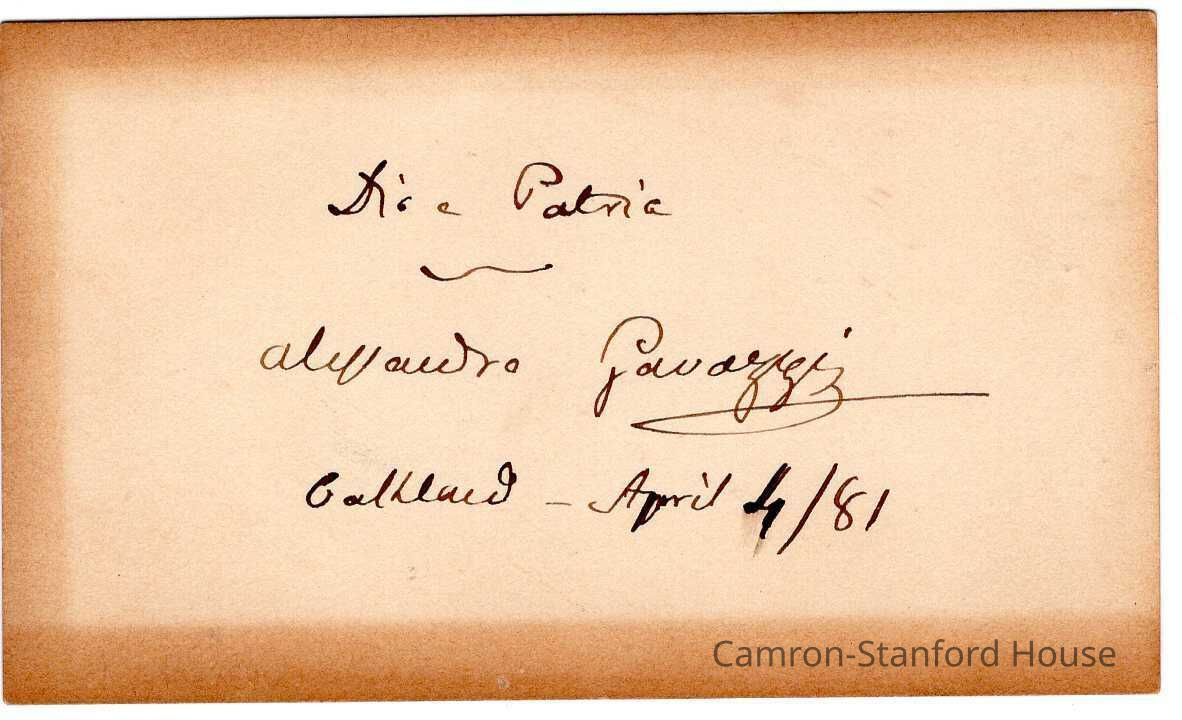 Dio e Patria
Alessandro Gavazzi
Oakland - April 4/81
Camron-Stanford House